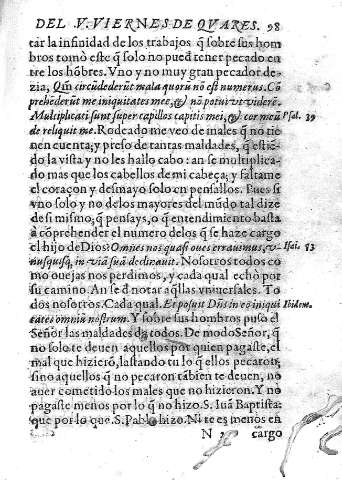 DEL V. VIERNES DE QVARES. 98
tar la infinidad de los trabajos q̃ sobre sus hom
bros tomò este q̃ solo no pued tener pecado en
tre los hõbres. Vno y no muy gran pecador de-
zia, Qm̃ circũdederũt mala quorũ nõ est numerus. Cõ
prehẽderũt me iniquitates meæ, & nõ potui vt viderẽ.
Multiplicati sunt super capillos capitis mei, & cor meũ Psal. 39
de reliquit me. Rodeado me veo de males q̃ no tie
nen cuenta; y preso de tantas maldades, q̃ estiẽ-
do la vista y no les hallo cabo: an se multiplica-
do mas que los cabellos de mi cabeça; y faltame
el coraçon y desmayo solo en pensallos. Pues si
vno solo y no de los mayores del mũdo tal dize
de si mismo; q̃ pensays, o q̃ entendimiento basta
à cõprehender el numero delos q̃ se haze cargo
el hijo de Dios? Omnes nos quasi oues errauimus, v- Isai. 53
nusquisq; in viã suã declinauit. Nosotros todos co
mo ouejas nos perdimos, y cada qual echò por
su camino. An se đ notar aq̃llas vniuersales. To
dos nosotros. Cada qual. Et posuit Dñs in eo iniqui Ibidem
tates omniũ nostrum. Y sobre sus hombros puso el
Señor las maldades de todos. De modo Señor, q̃
no solo te deuen aquellos por quien pagaste, el
mal que hizierõ, lastando tu lo q̃ ellos pecaron,
sino aquellos q̃ no pecaron tãbien te deuen, no
auer cometido los males que no hizieron. Y no
pagaste menos por lo q̃ no hizo. S. Iuã Baptista:
que por lo que. S. Pablo hizo. Ni te es menos en
N 2 cargo